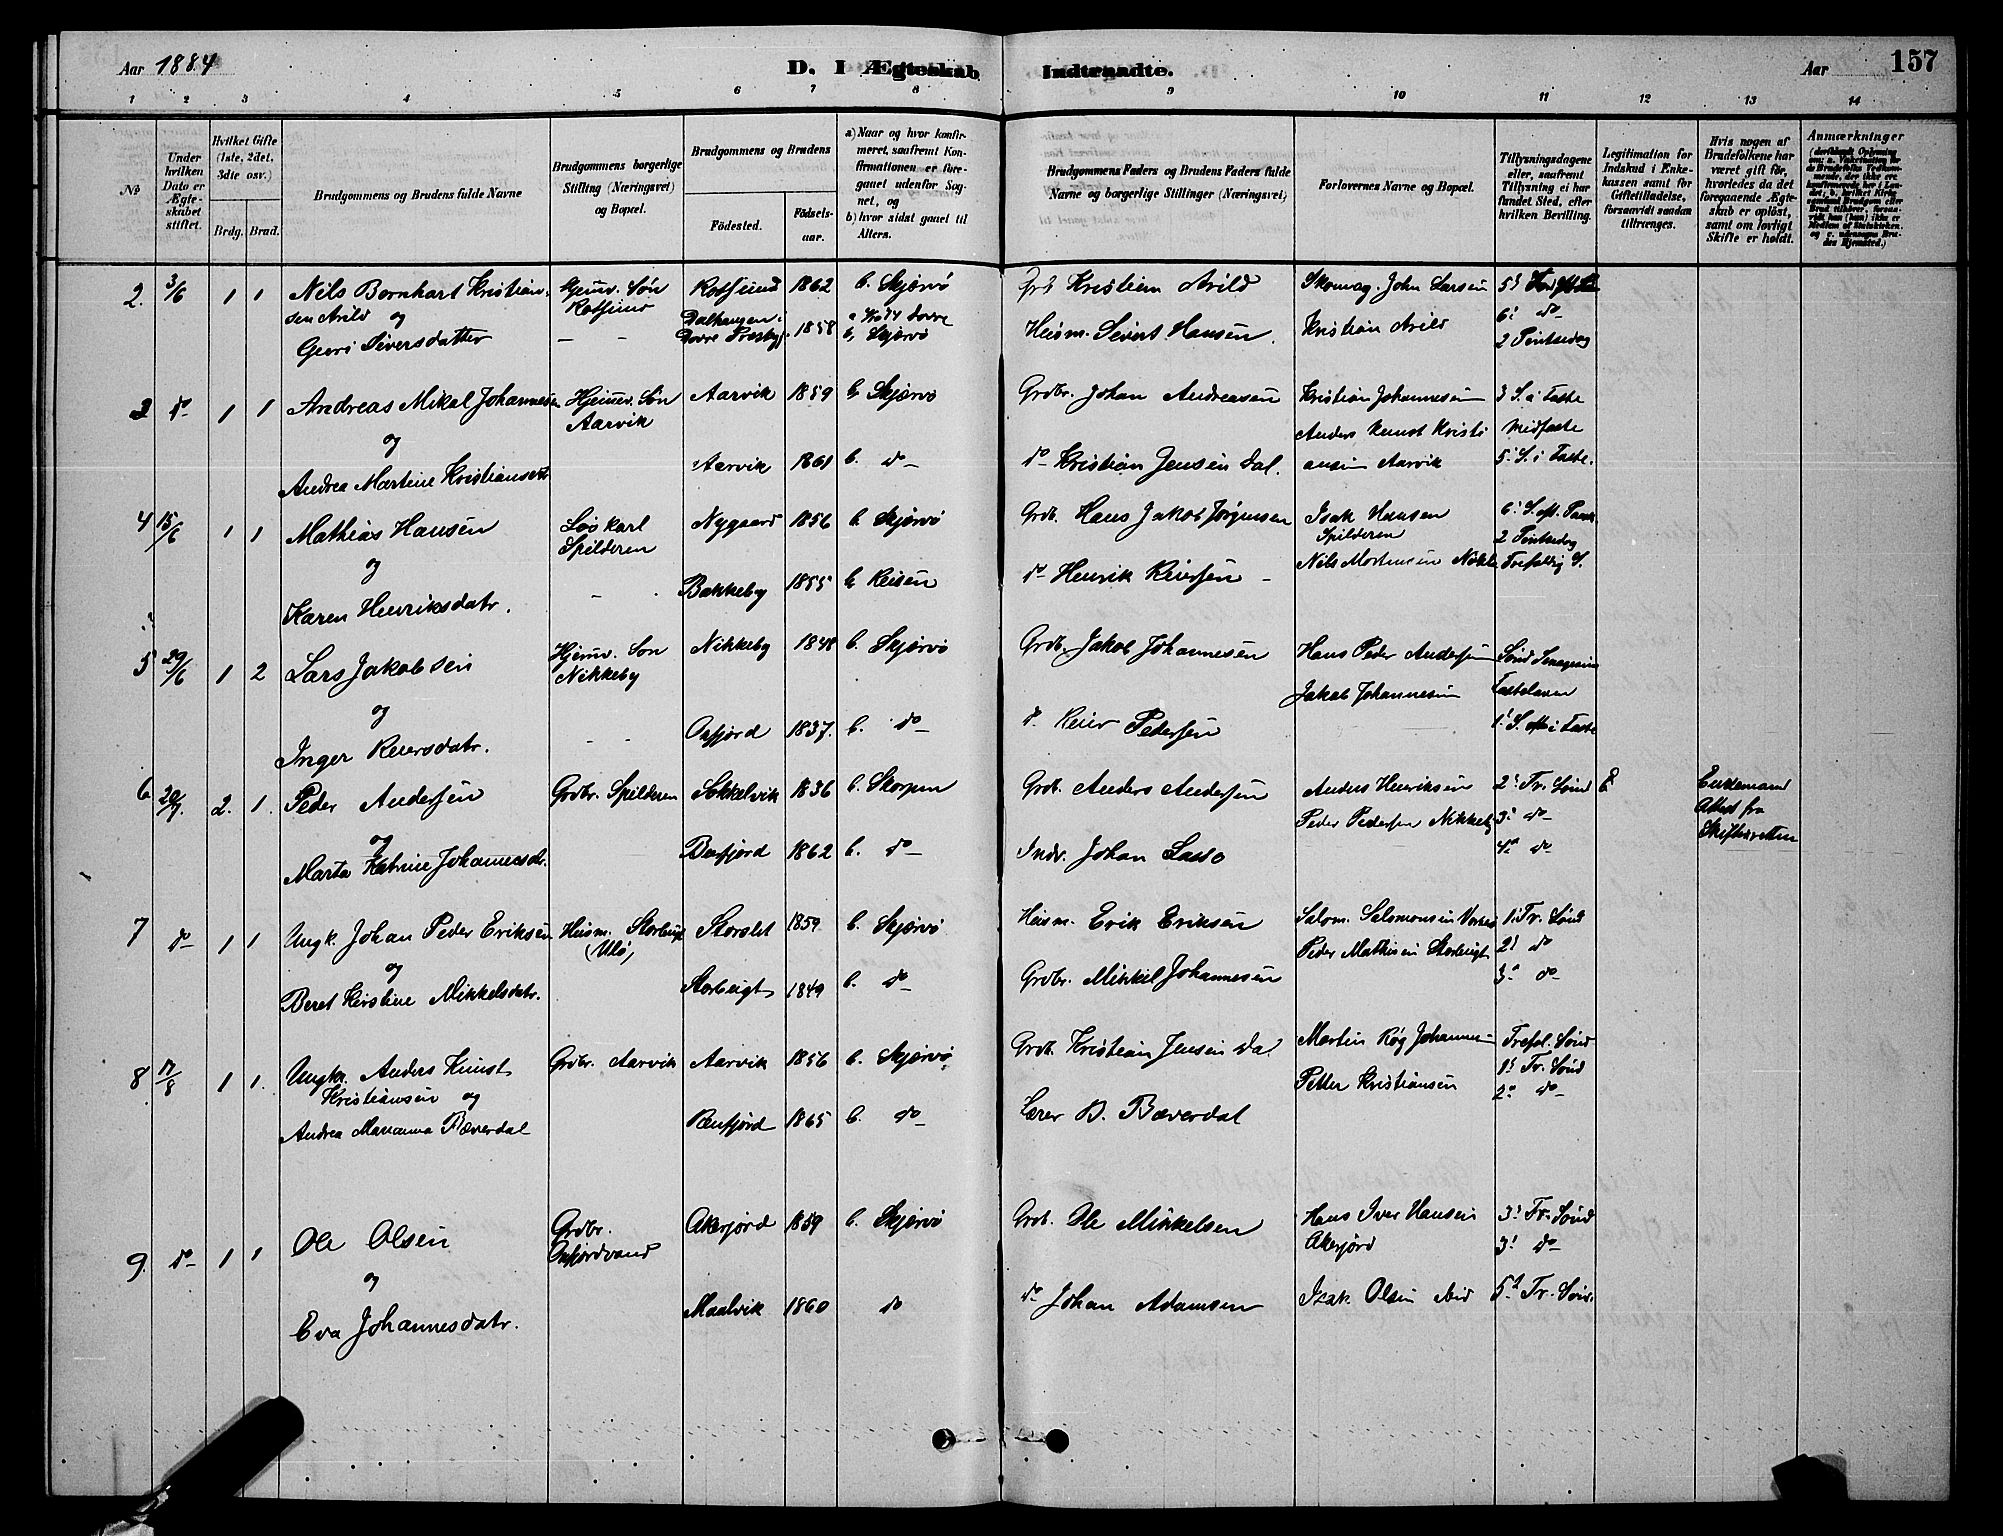 Aar 1884
D. I Ægteskab Indtraadte.
Aar
157
1 2 3 4 5 6 7 8 9 10 11 12 13 14
No
Under hvilken Dato er Ægteskabet stiftet.
Hvilket Gifte (1ste, 2det, 3dte osv.)
Brdg. Brud.
Brudgommens og Brudens fulde Navne
Brudgommens borgerlige Stilling (Næringsvei) og Bopæl.
Brudgommens og Brudens
Fødested.
Fødselsaar.
a) Naar og hvor konfirmeret, saafremt Konfirmationen er foregaaet udenfor Sognet, og
b) hvor sidst gaaet til Alters.
Brudgommens Faders og Brudens Faders fulde Navne og borgerlige Stillinger (Næringsvei)
Forlovernes Navne og Bopæl.
Tillysningsdagene eller, saafremt Tillysning ei har fundet Sted, efter hvilken Bevilling.
Legitimation for Indskud i Enkekassen samt for Giftetilladelse, forsaavidt saadan tiltrænges.
Hvis nogen af Brudefolkene har været gift før, hvorledes da det foregaaende Ægteskab er opløst, samt om lovligt Skifte er holdt.
Anmærkninger
2. 3/6 1 1 Nils Bernhart Kristian- Hjemv. Søn Rotsund 1862 b. Skjærvø Grb Kristian Arild Skomag. John Larsen
sen Arild og Rotsund Dalhaugen i
Dovre Præstgj. 1858 b, Skjærvø Heism. Sivert Hansen. Kristian Arild 6! do
Guri Siversdatter - - 2 Pintsedag
3 do 1 1 Andreas Mikal Johannesen Hjemv. Søn Aarvik 1859 b Skjærvø Grdbr. Johan Andreasen Kristian Johannesen 3 S. i Faste
og Aarvik Anders Kunst Kristi Midfaste
Andrea Martine Kristiansdtr Aarvik 1861 b. do do Kristian Jensen Dal. ansen Aarvik 5. S. i Faste.
4 15/6 1 1 Mathias Hansen Løskarl Nygaard 1856 b. Skjærvø Grdb. Hans Jakob Jørgensen Isak Hansen 6! S. eft. Paask
og Spilderen Spilderen 2 Pintsedag
Karen Henriksdatr. - Bakkeby 1855 b Reisen do Henrik Reiersen - Nils Mortensen Nikke Trefoldig S.
5 29/6 1 2 Lars Jakobsen Hjemv. Søn Nikkeby 1848 b. Skjærvø Grdb. Jakob Johannesen Hans Peder Andersen
og Nikkeby Jakob Johannesen Fastelaven
Inger Reiersdatr. - - Oxfjord 1837. b. do d. Reier Pedersen 1! S. i Faste
6 20/7. 2. 1. Peder Andersen Grdbr. Spilderen Sokkelvik 1836 b. Skorpen Grdb. Anders Andersen Anders Henriksen 2! Tr. Sønd E Enkemand
og Peder Pedersen Nikkeby 3! do Attest fra
Marta Katrine Johannesdr. Burfjord 1862 b. do Indr. Johan Lasso 4! do Skifteretten
7 do 1 1 Ungk. Johan Peder Eriksen Heism. Storbugt Storslet 1859 b. Skjærvø Heism. Erik Eriksen Salom. Salomonsen 1! Tr. Sønd
og (Ulø) Peder Mathisen Storbugt 2! do
Beret Kirstine Mikkelsdatr. Storbugt 1849 b. do Grdbr. Mikkel Johannesen 3. do
8 17/8 1 1. Ungkr. Anders Kunst Grdbr. Aarvik Aarvik 1856 b. Skjærvø Grdb. Kristian Jensen Dal Martin Røg Johanne- Trefol. Sønd
Kristiansen og Petter Kristiansen 1! Tr. Sønd
Andrea Marianna Bæverdal Reisfjord 1865 b. do Lærer B. Bæverdal 2. do
9. do 1 1 Ole Olsen Grdbr. Akerfjord 1859 b. Skjærvø Grdb. Ole Mikkelsen Hans Iver Hansen 3! Tr. Sønd
og Oxfjordvand Akerfjord 3! do
Eva Johannesdatr. Maalvik 1860 do do Johan Adamsen Isak Olsen ibid 5! Tr. Sønd.